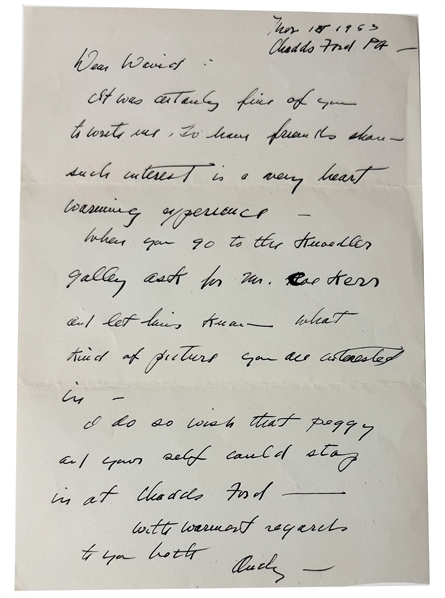 Nov 18 1953
Chadds Ford PA —
Dear David :
It was certainly fine of you
to write me, To have friends show
such interest is a very heart
warming experience —
When you go to the Knoedler
galley ask for Mr. Coe Kerr
and let him know what
kind of picture you are interested
in —
I do so wish that Peggy
and your self could stay
in at Chadds Ford —
with warmest regards
to you both Andy —